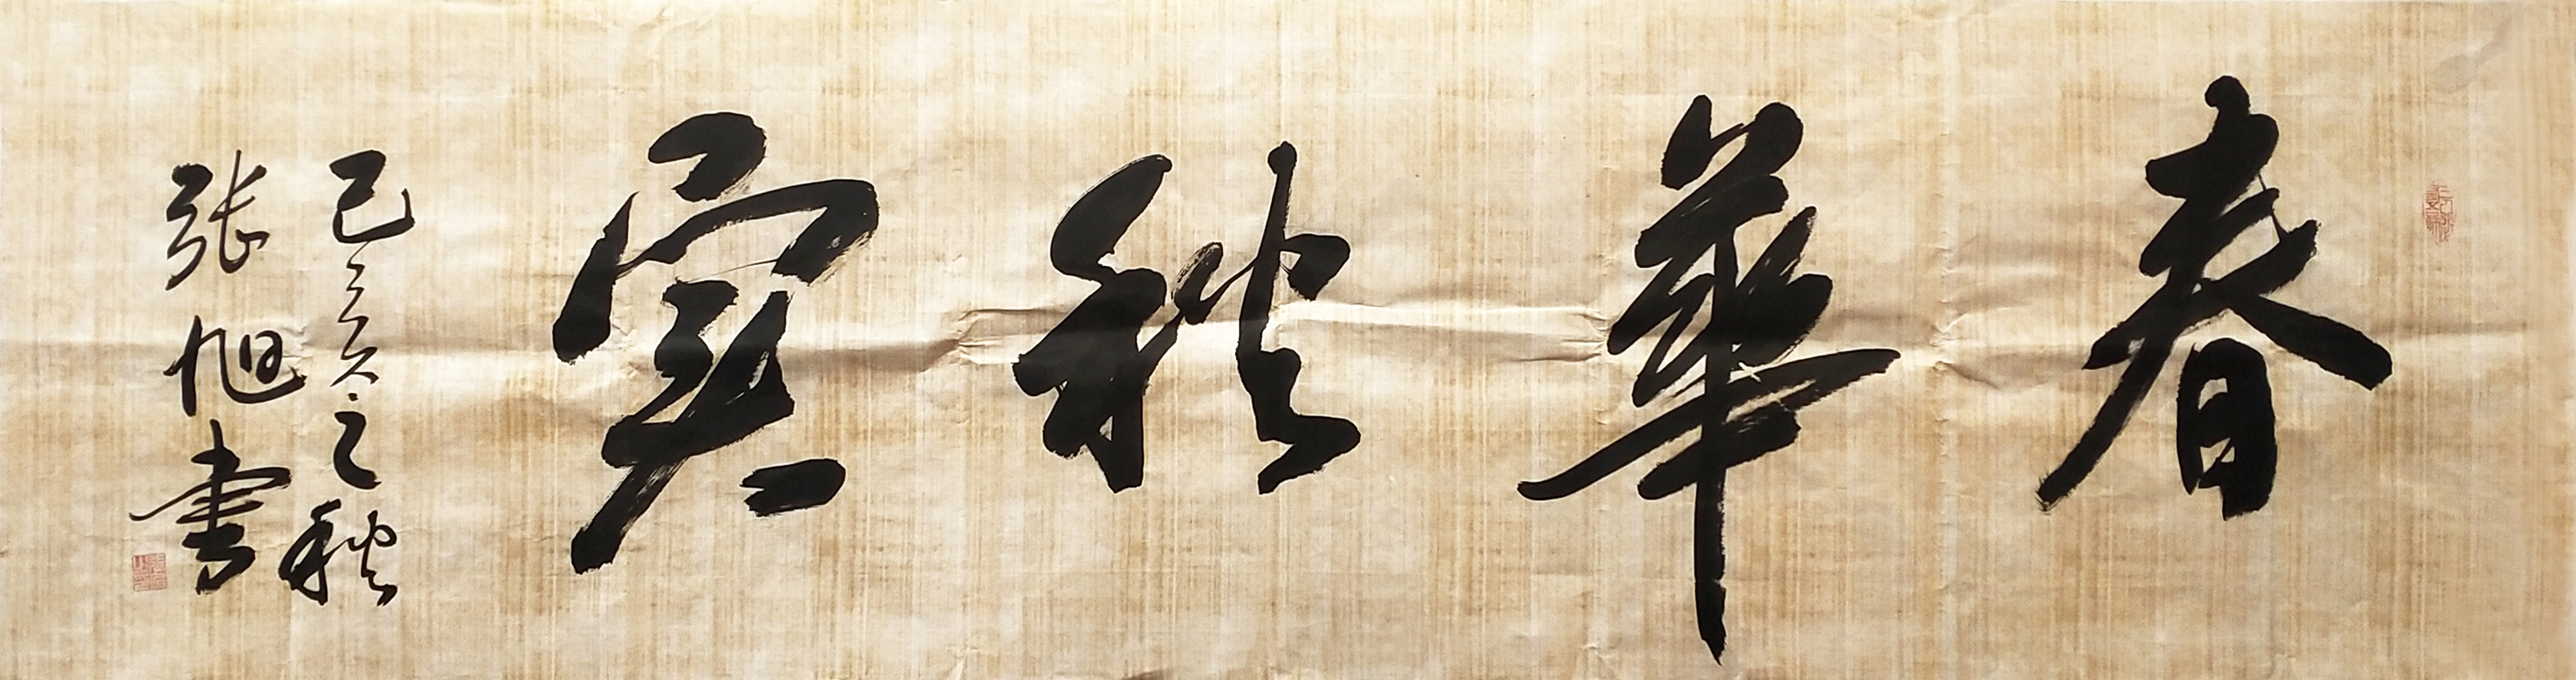 春華秋實
己亥之秋
張旭書